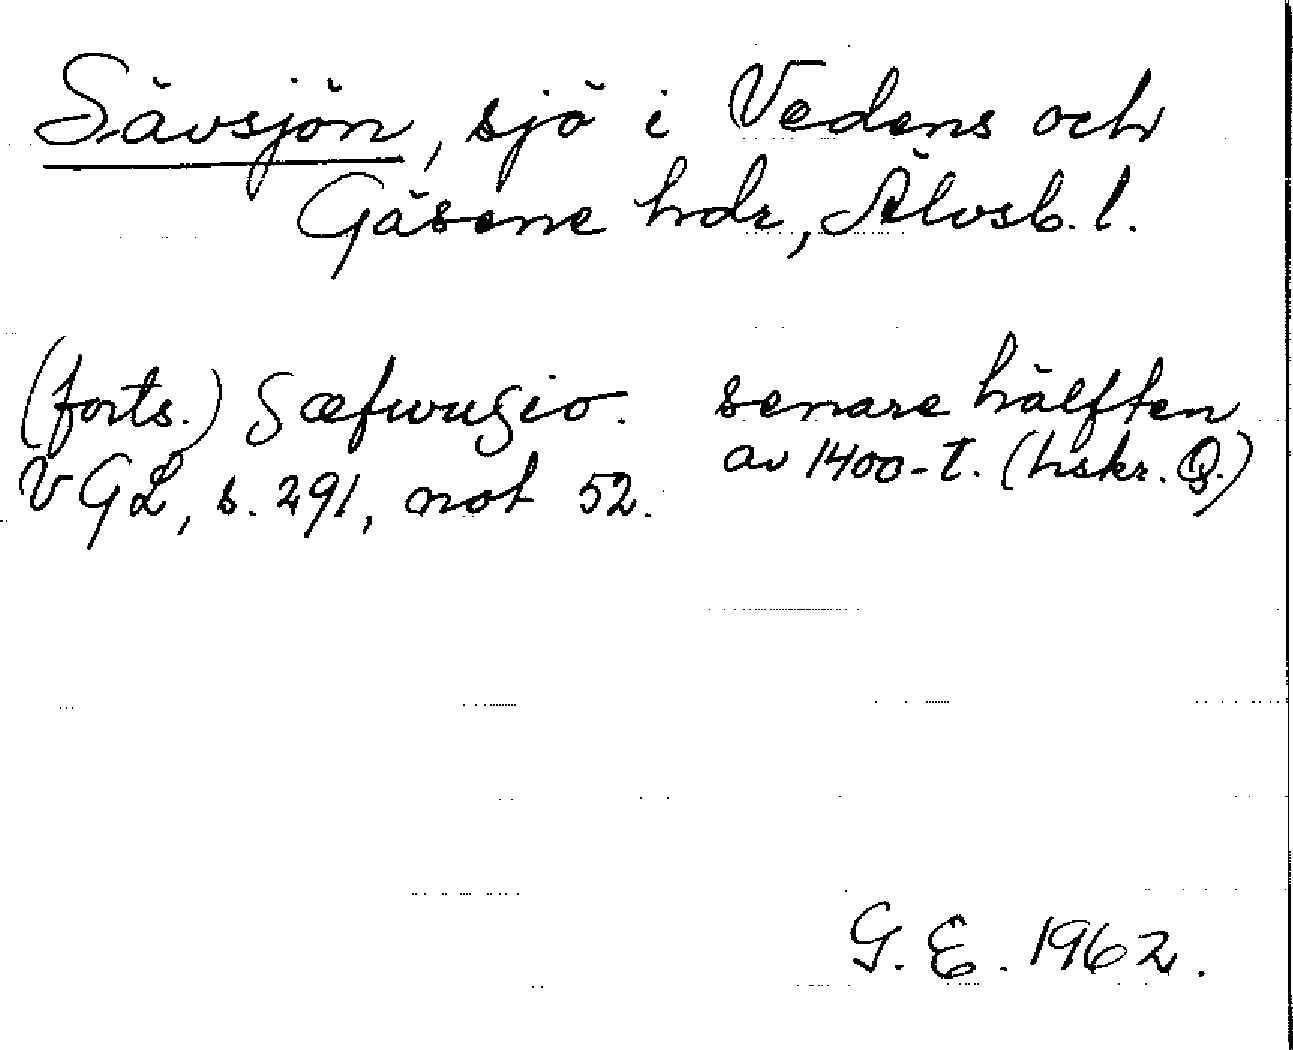 Sävsjön, sjö i Vedens och
Gäsene hdr, Älvsb. l.
(forts.) Sæfwusio. senare hälften
av 1400-t. (hskr. Q.)
VGL, s. 291, not 52.
G. E. 1962.